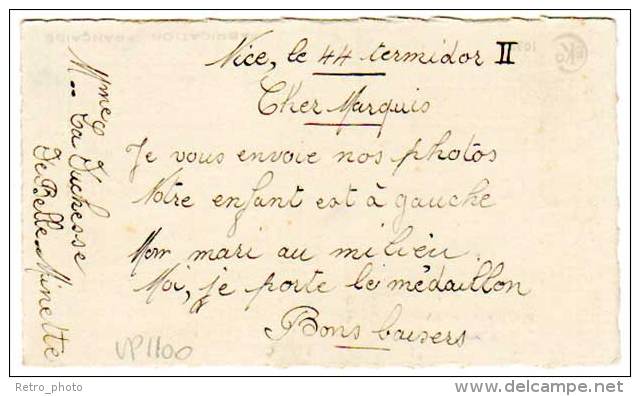 FABRICATION FRANÇAISE
Nice, le 44 termidor II
Cher Marquis
Je vous envoie nos photos
Notre enfant est à gauche
Mon mari au milieu.
Moi, je porte le médaillon
Bons baisers
Mme
La Duchesse
De Belle Minette
VP1100
Retro_photo
delcampe.net